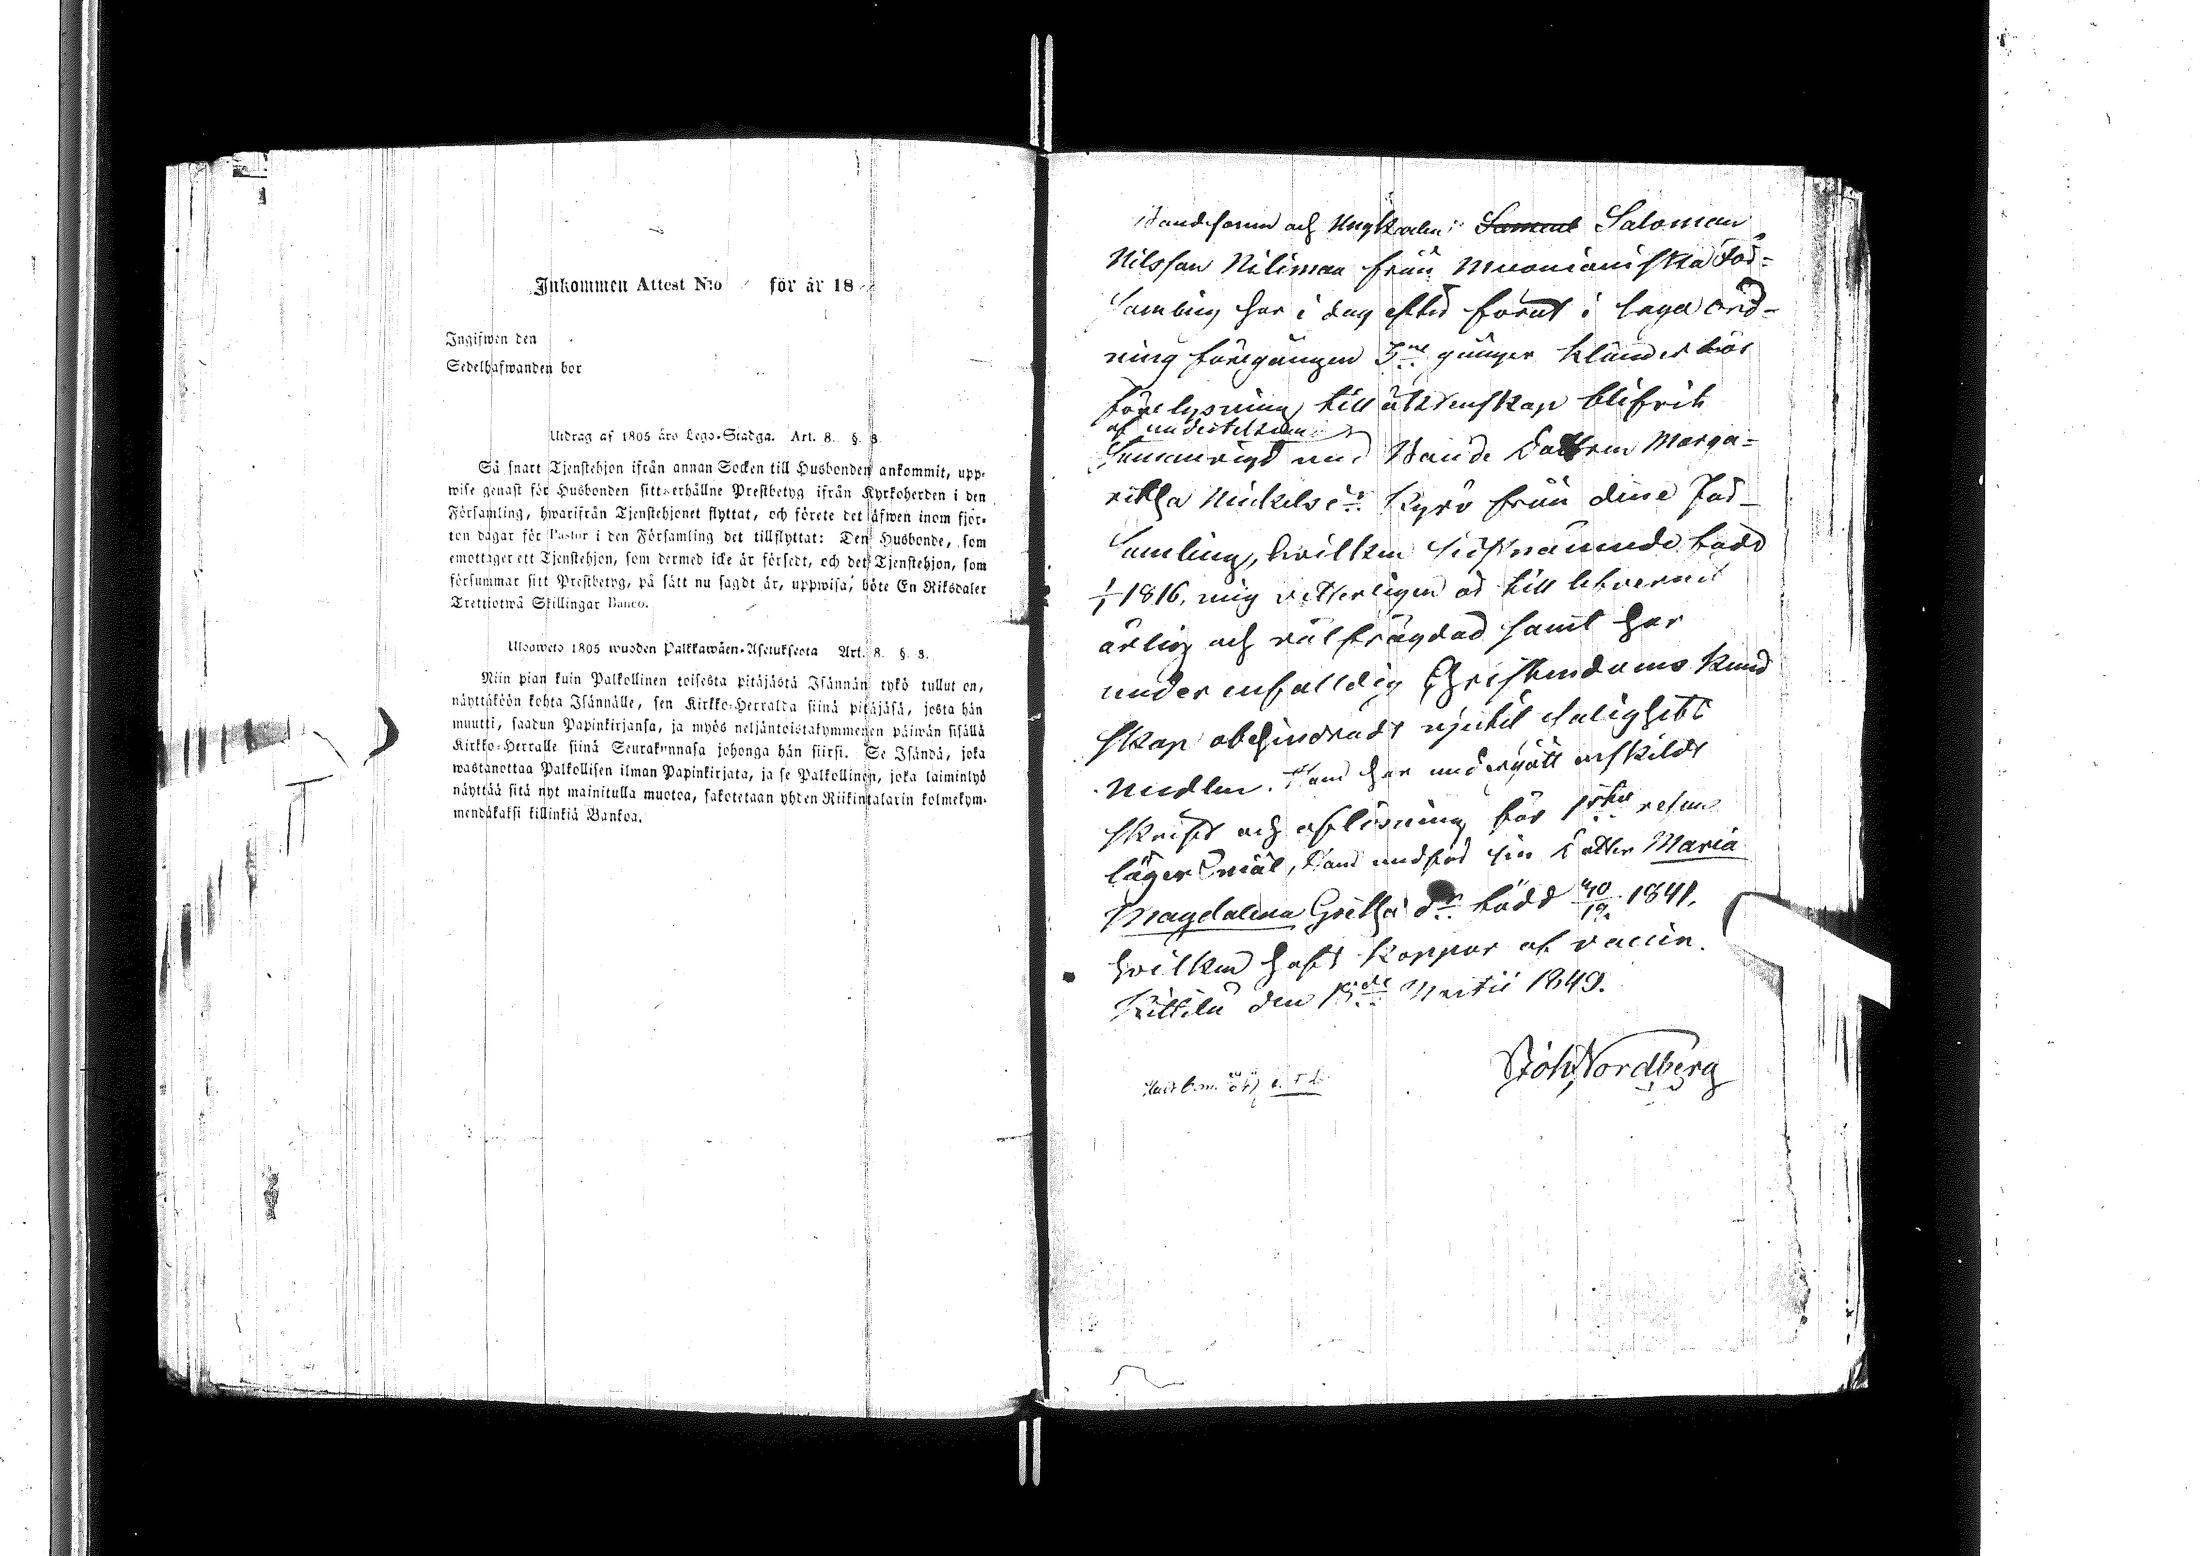 Inkommen Attest N:o för år 18
Ingifwen den
Sedelhafwanden bor
Utdrag af 1805 års Lego-Stadga. Art. 8. §. 3.
Så snart Tjenstehjon ifrån annan Socken till Husbonden ankommit, upp-
wise genast för Husbonden sitt erhållne Prestbetyg ifrån Kyrkoherden i den
Församling, hwarifrån Tjenstehjonet flyttat, och förete det äfwen inom fjor-
ton dagar för Pastor i den Församling det tillflyttat: Den Husbonde, som
emottager ett Tjenstehjon, som dermed icke är försedt, och det Tjenstehjon, som
försummar sitt Prestbetyg, på sätt nu sagdt är, uppwisa, böte En Riksdaler
Trettiotwå Skillingar Banco.
Ulosweto 1805 wuoden Palkkawäen-Asetuksesta Art. 8. §. 3.
Niin pian kuin Palkollinen toisesta pitäjästä Isännän tykö tullut on,
näyttäköön kohta Isännälle, sen Kirkko-Herralta siinä pitäjäsä, josta hän
muutti, saadun Papinkirjansa, ja myös neljäntoistakymmenen päiwän sisällä
Kirkko-Herralle siinä Seurakunnasa johonga hän siirsi. Se Isändä, joka
wastanottaa Palkollisen ilman Papinkirjata, ja se Palkollinen, joka laiminlyö
näyttää sitä nyt mainitulla muotoa, sakotetaan yhden Riikintalarin kolmekym-
mendäkaksi killinkiä Bankoa.
Bondesonen och Ungkarlen Samuel Saloman
Nilsson Niliman från Muonioniska För-
samling har i dag efter förut i laga ord-
ning föregången 3ne gånger kläander
förelysning till äktenskap blifvit
af undertecknad
sammanvigd med Bonde dottren Marga-
retha Michelsdr Kyrö från dine För-
samling, hvilken sistnämnde född
1/1 1816, mig vetterligen är till lefvernet
ärlig och välfrägdad samt har
under enfalldig Christendoms kund
skap obehindradt njutit salighets
medlen. Hand har undergått enskildt
skrift och aflösning för 1sta resan
lägersmål, Hand medför sin dotter Maria
Magdalena Gretha dr född 1841,
hvilken haft koppor af vaccin.
Kittilä den 13de Martii 1849.
Joh. Nordberg